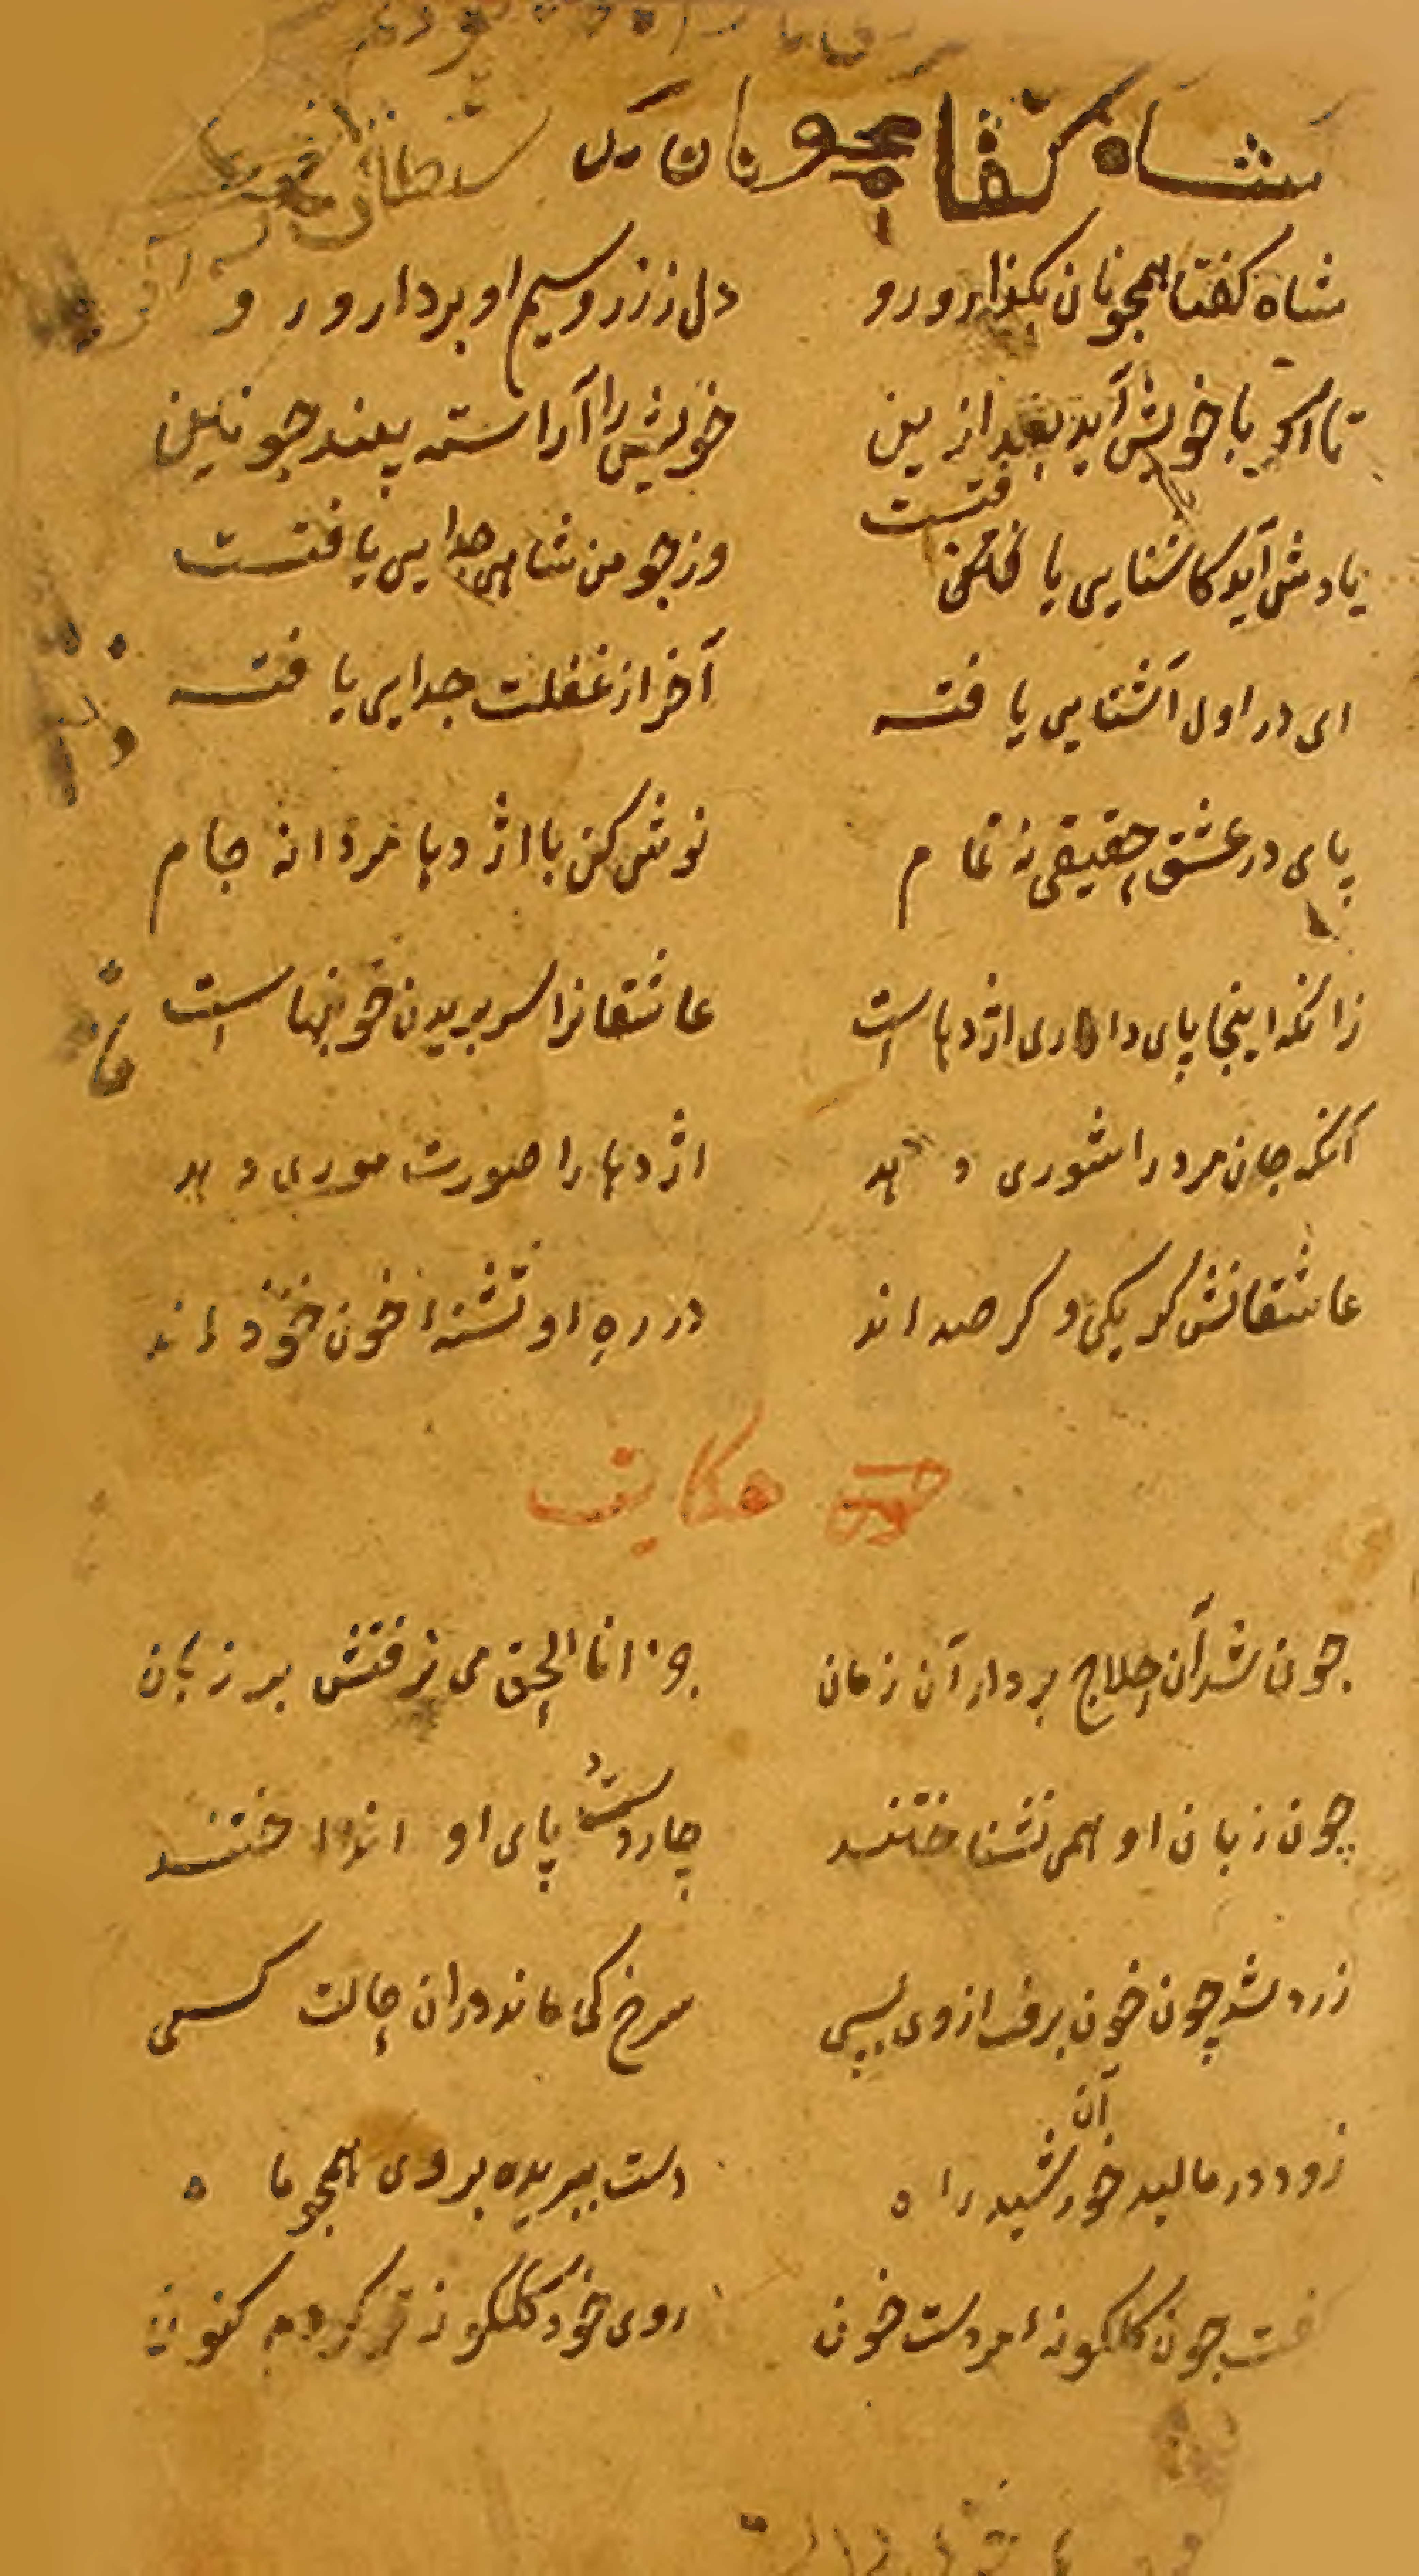 شاه كفتا همجونان
سلطان
شاه كفتا همجونان بكذار و رو دل ز زر و سیم او بردار و ر و
تا اكر با خویش آید بعد ازین خویش را آراسته بیند چونین
یادش آید كاشنایی یا فتست وز جو من شاهی جدایی یا فتست
ای در اول آشنایی یا فته آخر از غفلت جدایی یا فته
پای در عشق حقیقی نه تما م نوش كن با اژدها مردانه جام
زانكه اینجا پای داری اژدهاست عاشقانرا سر بریدن خونبهاست
آنكه جان مرد را شوری دهد اژدها را صورت موری دهد
عاشقانش كر یكی و كر صد اند در ره او تشنهٔ خون خود اند
حكایت
جون شد آن حلاج بر دار آن زمان جز انا الحق می نرفتش بر زبان
چون زبان او همی نشناختند چار دست و پای او انداختند
زرد شد چون خون برفت از وی بسی سرخ كی ماند دران حالت كسی
زود در مالید آن خورشید راه دست ببریده بروی همجو ماه
كفت جون كلكونهٔ مردست خون روی خود كلكونه تر كردم كنون